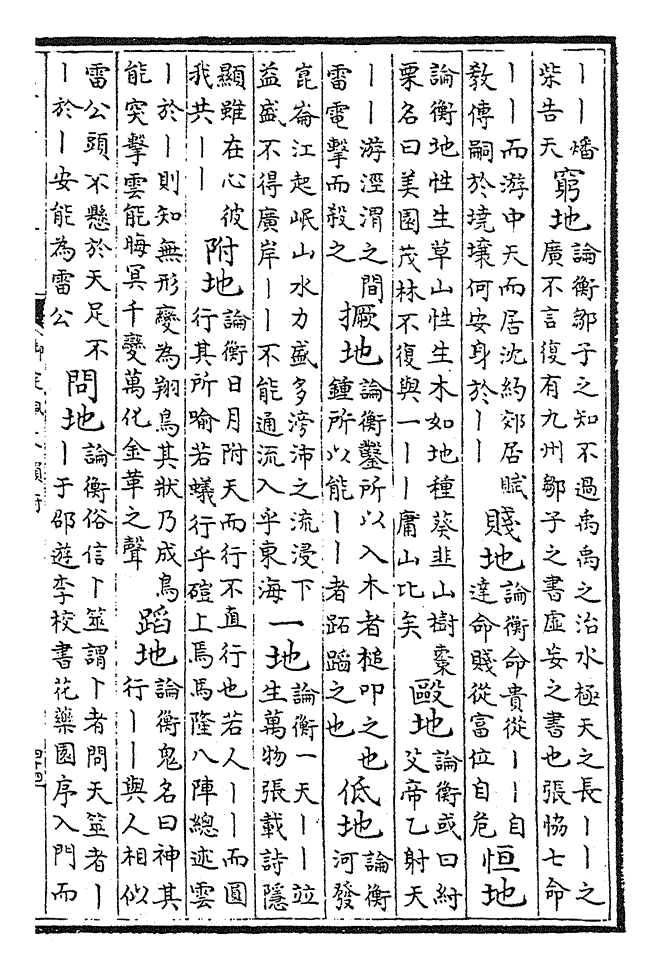 丨丨燔
柴告天
窮地
論衡鄒子之知不過禹禹之治水極天之長丨丨之
廣不言復有九州鄒子之書虛妄之書也張協七命
丨丨而游中天而居沈約郊居賦
敎傳嗣於境壤何安身於丨丨
賤地
論衡命貴從丨丨自
達命賤從富位自危
恒地
論衡地性生草山性生木如地種葵韭山樹棗
栗名曰美園茂林不復與一丨丨庸山比矣
毆地
論衡或曰紂
父帝乙射天
丨丨游涇渭之間
雷電擊而殺之
撅地
論衡鑿所以入木者槌叩之也
鍾所以能丨丨者跖蹈之也
低地
論衡
河發
崑崙江起岷山水力盛多滂沛之流浸下
益盛不得廣岸丨丨不能通流入乎東海
一地
論衡一天丨丨竝
生萬物張載詩隱
顯雖在心彼
我共丨丨
附地
論衡日月附天而行不直行也若人丨丨而圓
行其所喻若蟻行乎磑上焉馬隆八陣總述雲
丨於丨則知無形變為翔鳥其狀乃成鳥
能突擊雲能晦冥千變萬化金革之聲
蹈地
論衡鬼名曰神其
行丨丨與人相似
雷公頭不懸於天足不
丨於丨安能為雷公
問地
論衡俗信卜筮謂卜者問天筮者丨
丨于邵遊李校書花藥園序入門而